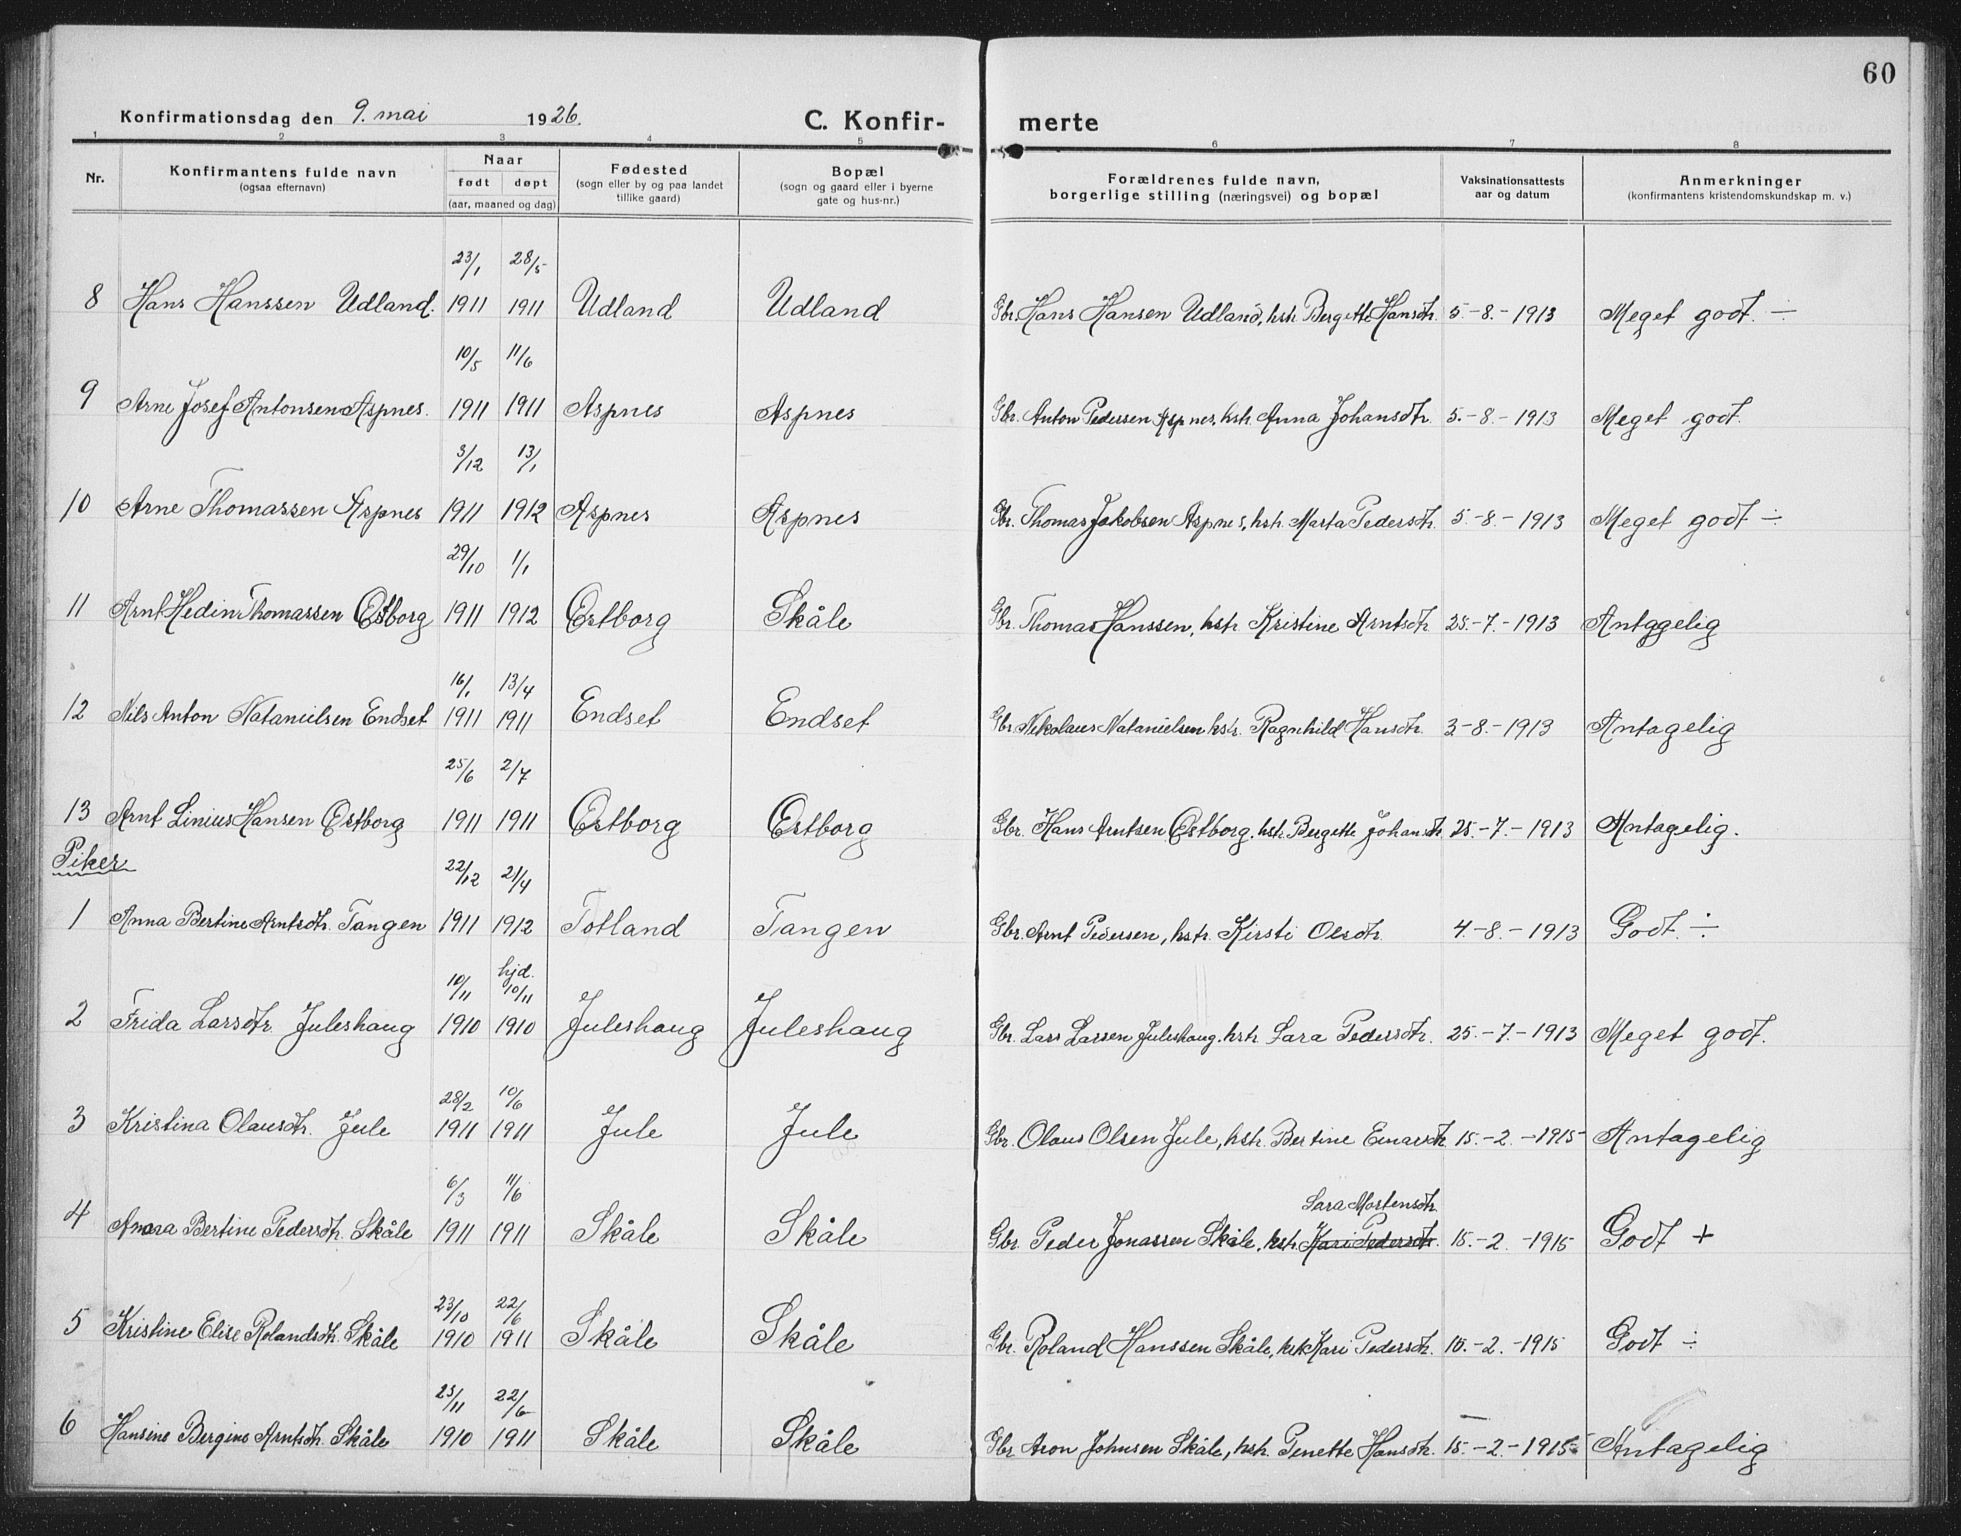 60
Konfirmationsdag den 9. mai 1926. C. Konfirmerte
1 2 3 4 5 6 7 8
Nr. Konfirmantens fulde navn (ogsaa efternavn) Naar født døpt (aar, maaned og dag) Fødested (sogn eller by og paa landet tillike gaard) Bopæl (sogn og gaard eller i byerne gate og hus-nr.) Forældrenes fulde navn, borgerlige stilling (næringsvei) og bopæl Vaksinationsattests aar og datum Anmerkninger (konfirmantens kristendomskundskap m. v.)
23/1 28/5
8 Hans Hanssen Udland. 1911 1911 Udland Udland Gbr. Hans Hansen Udland, hstr. Bergette Hansdtr. 5.-8.-1913 Meget godt. ÷
10/5 11/6
9 Arne Josef Antonsen Aspnes. 1911 1911 Aspnes Aspnes Gbr. Anton Pedersen Aspnes, hstr. Anna Johansdtr. 5.-8-1913 Meget godt.
3/12 13/1
10 Arne Thomassen Aspnes 1911 1912 Aspnes Aspnes Gbr. Thomas Jakobsen Aspnes, hstr. Marta Pedersdtr. 5.-8.-1913 Meget godt ÷
29/10 1/1
11 Arnt Hedin Thomassen Estborg 1911 1912 Estborg Skåle Gbr. Thomas Hanssen, hstr. Kristine Arntsdtr. 25.-7.-1913 Antggelig
16/1 13/4
12 Nils Anton Natanielsen Endset 1911 1911 Endset Endset Gbr. Nikolaus Natanielsen hstr. Ragnhild Hansdtr. 3-8.-1913 Antagelig
25/6 2/7
13 Arnt Linius Hansen Estborg 1911 1911 Estborg Estborg Gbr. Hans Arntsen Estborg, hstr. Bergette Johansdtr. 25.-7.-1913 Antagelig.
Piker
22/12 21/4
1 Anna Bertine Arntsdtr. Tangen 1911 1912 Totland Tangen Gbr. Arnt Pedersen, hstr. Kirsti Olsdtr. 4.-8.-1913 Godt. ÷
10/11 hjd. 10/11
2 Frida Larsdtr. Juleshaug 1910 1910 Juleshaug Juleshaug Gbr. Lars Larsen Juleshaug, hstr. Sara Pedersdtr. 25.-7.-1913 Meget godt.
28/2 10/6
3 Kristina Olausdtr. Jule 1911 1911 Jule Jule Gbr. Olaus Olsen Jule, hstr. Bertine Einarsdtr. 15.-2.-1915 Antagelig
6/3 11/6 Sara Mortensdtr.
4 Anna Bertine Pedersdtr. Skåle 1911 1911 Skåle Skåle Gbr. Peder Jonassen Skåle, hstr. Kari Pedersdtr. 15.-2.-1915 Godt +
23/10 22/6
5 Kristine Elise Rolandsdtr. Skåle 1910 1911 Skåle Skåle Gbr. Roland Hanssen Skåle, hstr. Kari Pedersdtr. 15.-2.-1915 Godt ÷
23/11 22/6
6 Hansine Bergine Arntsdtr. Skåle 1910 1911 Skåle Skåle Gbr. Aron Johnsen Skåle, hstr. Penette Hansdtr. 15.-2.-1915 Antagelig